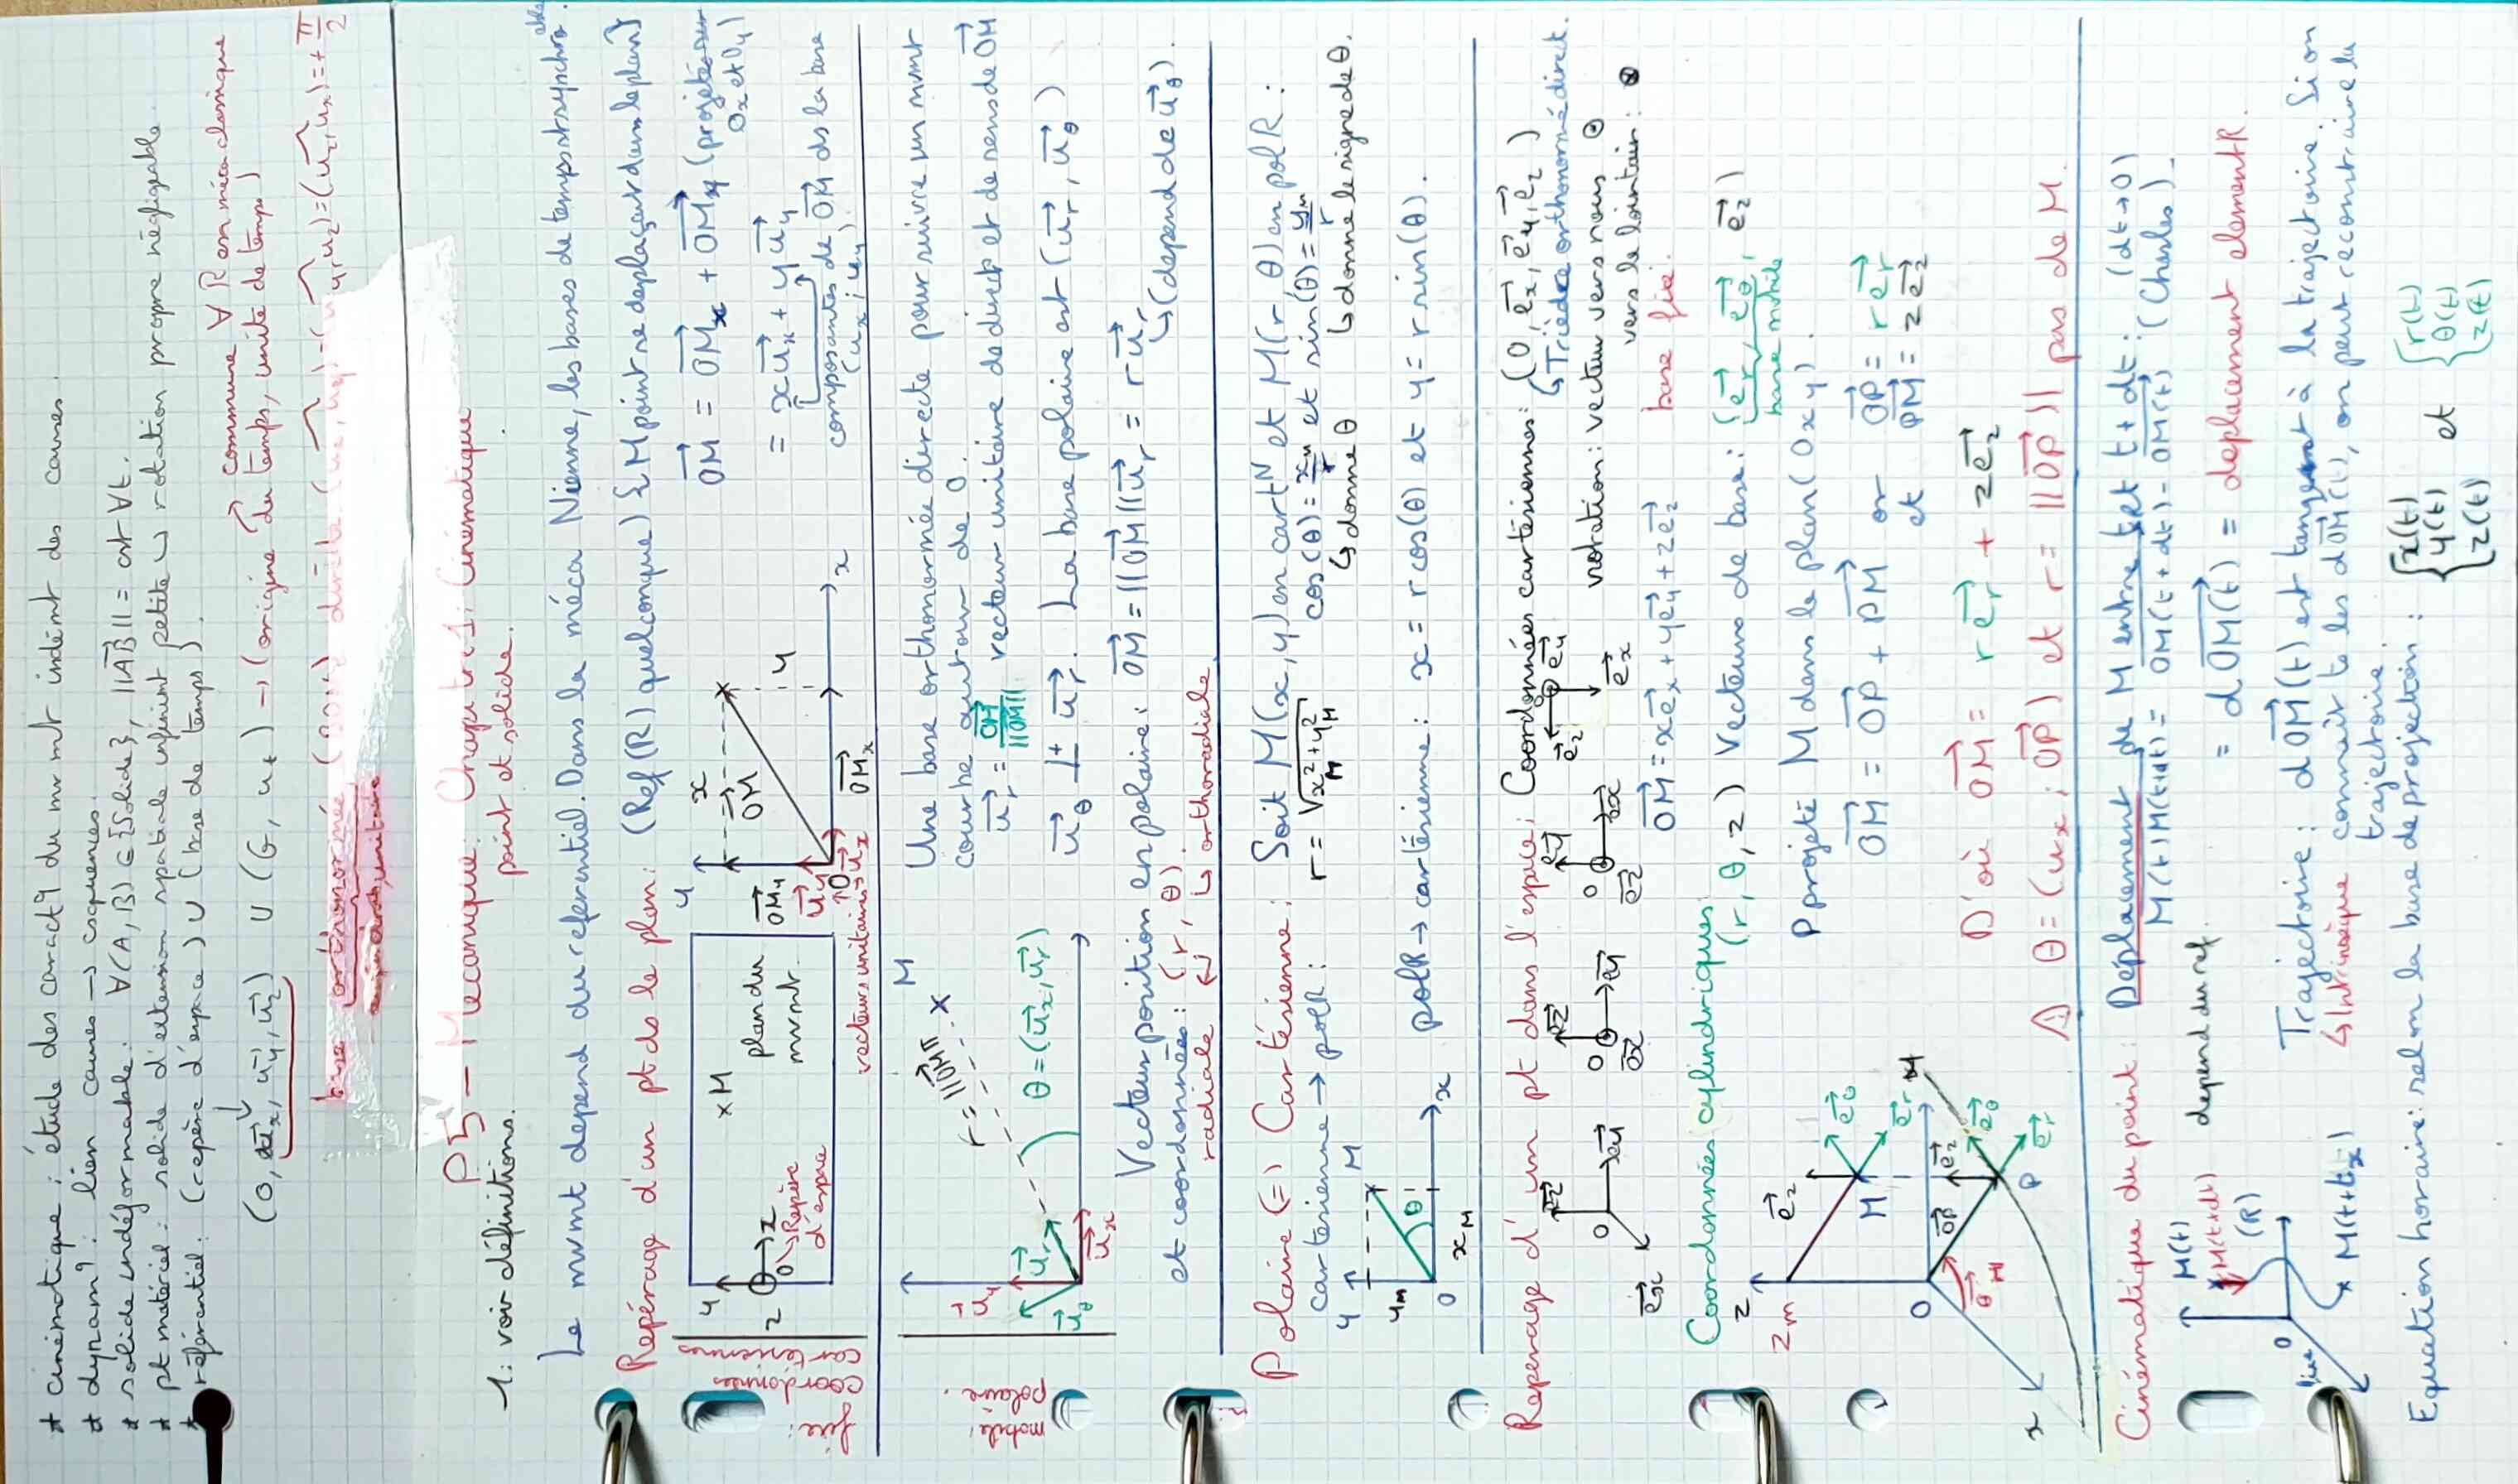 * cinématique : étude des caractq du mvmnt indépmt des causes.
* dynamq : lien causes → csquences.
* solide indéformable : ∀(A, B) ∈ {Solide}, ||AB|| = cst ∀t.
* pt matériel : solide d'extension spatiale infinimt petite ↪ rotation propre négligeable.
* référentiel : (repère d'espace) ∪ (base de temps).
↪ commune ∀ R en méca classique
(O, ux, uy, uz) ∪ (G, ut) → (origine du temps, unité de temps)
base orthonormée directe
P5 - Mecanique : Chapitre 1 : Cinématique
point et solide.
1 : voir définitions.
Le mvmnt depend du referentiel. Dans la méca Nienne, les bases de temps st synchronisables.
Repérage d'un pt ds le plan : (Ref (R) quelconque) {M point se deplaçant dans le plan}
coordonnées cartésiennes
fixe :
y
x M
plan du mvmnt
z
O
x
Repère d'espace
y
x
OM
y
OMy
uy
O ux
OMx
x
vecteurs unitaires
OM = OMx + OMy (projetés sur Ox et Oy)
= x ux + y uy
composantes de OM ds la base (ux ; uy)
mobile :
polaire.
M
r = ||OM||
θ = (ux, ur)
uy
ur
uθ
ux
Une base orthonormée directe pour suivre un mvmt
courbe autour de O.
ur = OM / ||OM|| vecteur unitaire de direct° et de sens de OM
uθ ⊥+ ur. La base polaire est (ur, uθ)
Vecteur position en polaire : OM = ||OM|| ur = r ur
↪ (depend de uθ).
et coordonnées : (r, θ).
radiale ↩ ↪ orthoradiale
Polaire (=) Cartésienne : Soit M(x, y) en cartN et M(r, θ) en polR :
cartésienne → polR : r = √(xM² + yM²) cos(θ) = xM/r et sin(θ) = yM/r
↪ donne θ ↪ donne le signe de θ.
polR → cartésienne : x = r cos(θ) et y = r sin(θ).
y
M
yM
θ
O
xM
x
Reperage d'un pt dans l'espace : Coordonnées cartésiennes : (O, ex, ey, ez)
↪ Trièdre orthonormé direct.
notation : vecteur vers nous ⊙
vers le lointain : ⊗
OM = x ex + y ey + z ez base fixe.
Coordonnées cylindriques :
(r, θ, z) Vecteurs de base : (er, eθ, ez)
base mobile
P projeté M dans le plan (Oxy).
OM = OP + PM or OP = r er
et PM = z ez
D'où OM = r er + z ez
⚠ θ = (ux ; OP) et r = ||OP|| pas de M.
z
zM
ez
eθ
M
er
O
OP
ez
eθ
θM
P
er
x
Cinématique du point : Deplacement de M entre t et t + dt : (dt → 0)
M(t)M(t+dt) = OM(t + dt) - OM(t) (Charles)
= dOM(t) = deplacement elementR.
depend du ref.
M(t)
M(t+dt)
(R)
O
Trajectoire : dOM(t) est tangent à la trajectoire. Si on
↪ Intrinsèque connaît ts les dOM(t), on peut reconstruire la
trajectoire.
Equation horaire : selon la base de projection : { x(t) y(t) z(t) et { r(t) θ(t) z(t)